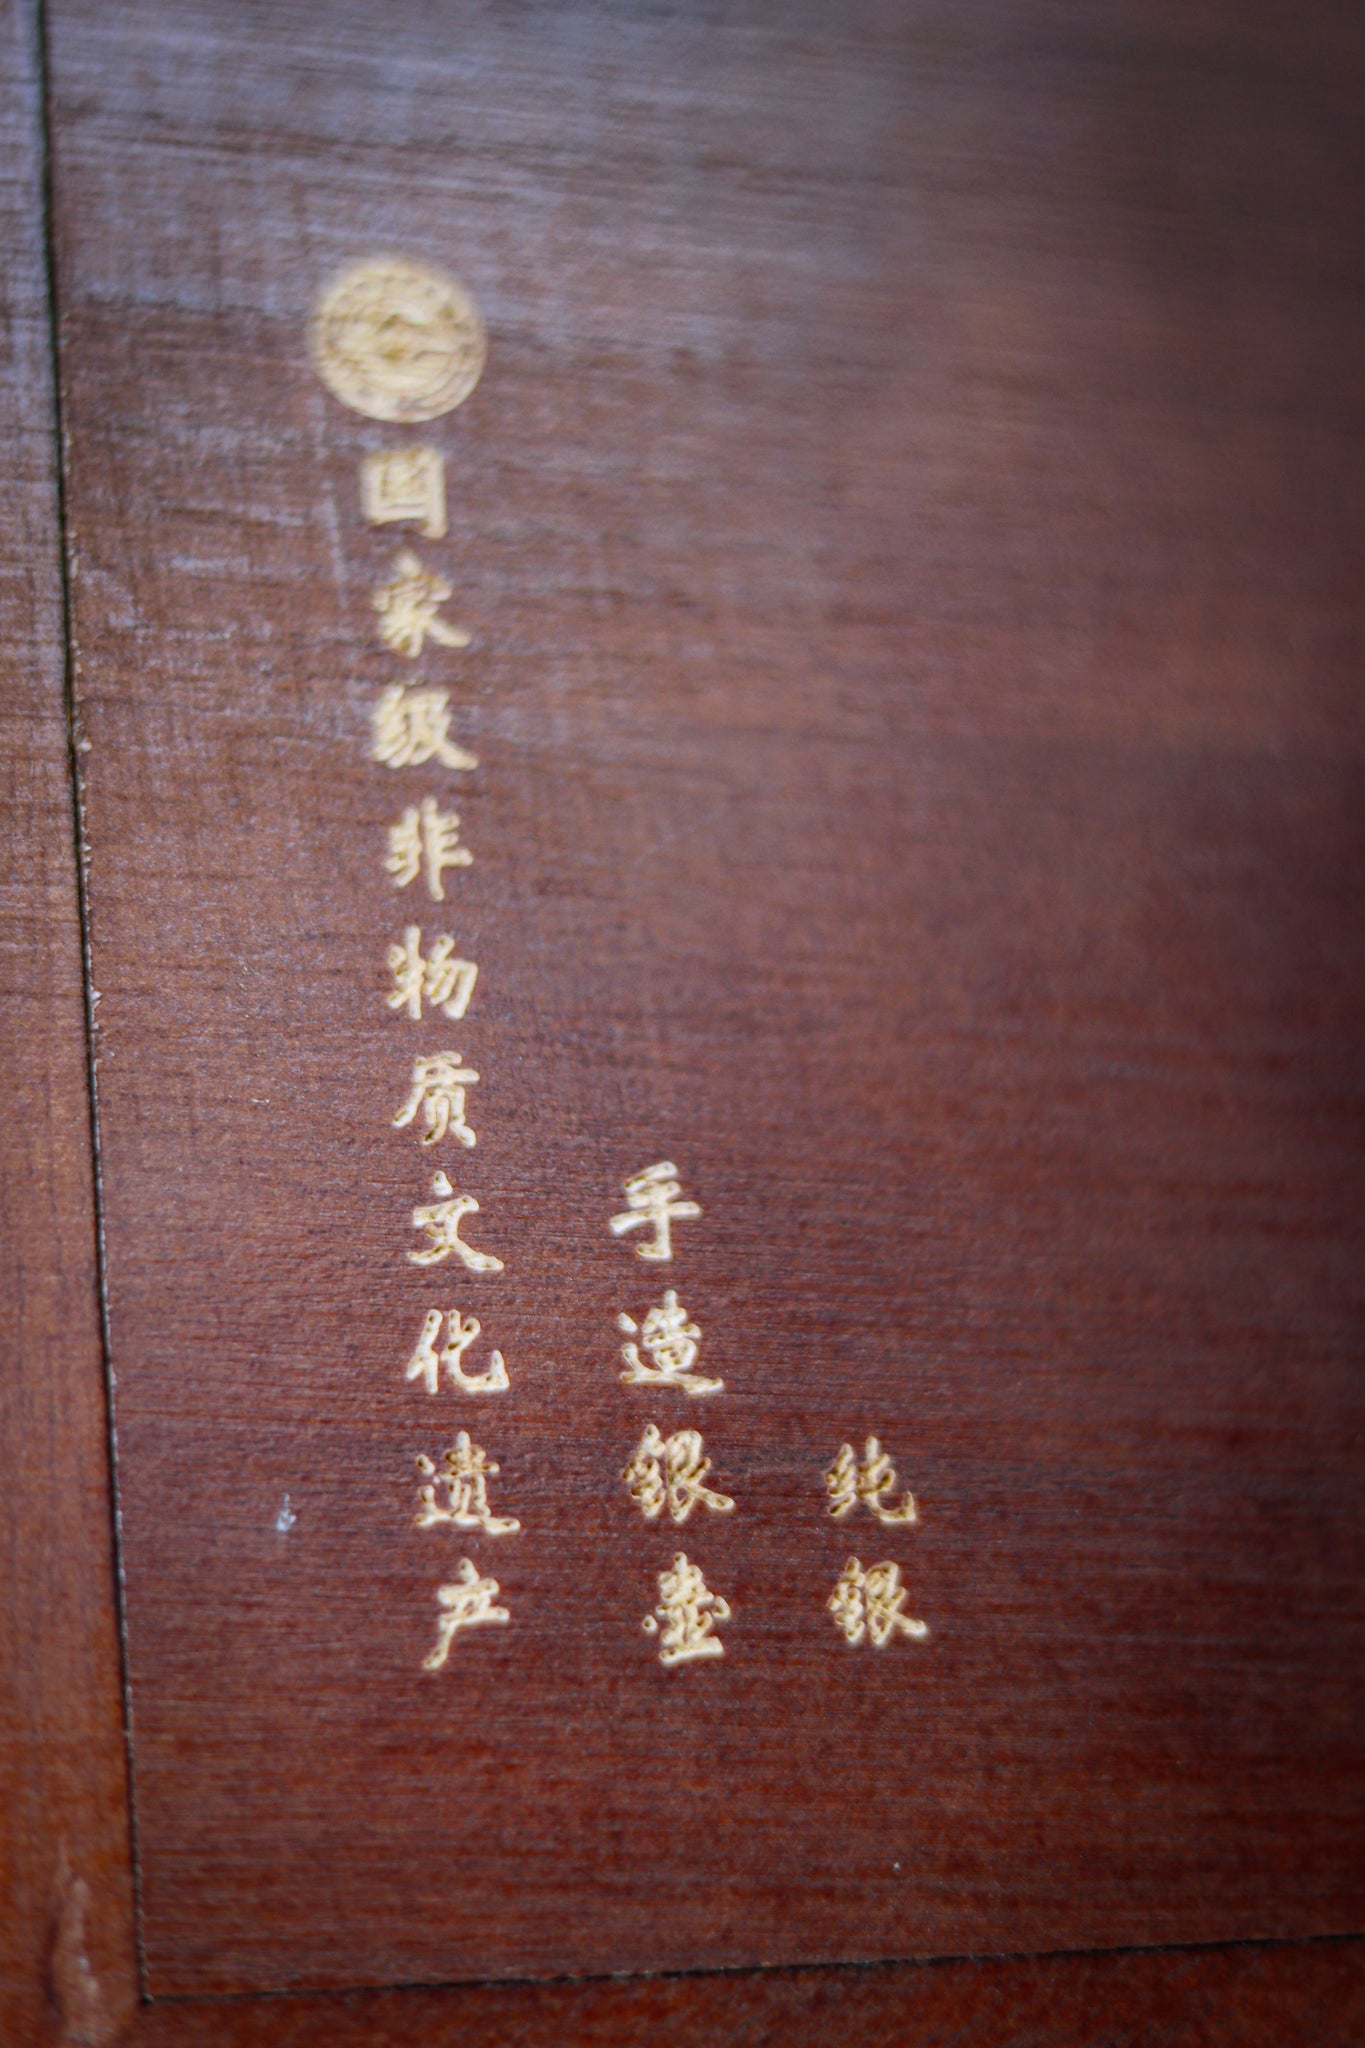 国家级非物质文化遗产
手造银壶
纯银